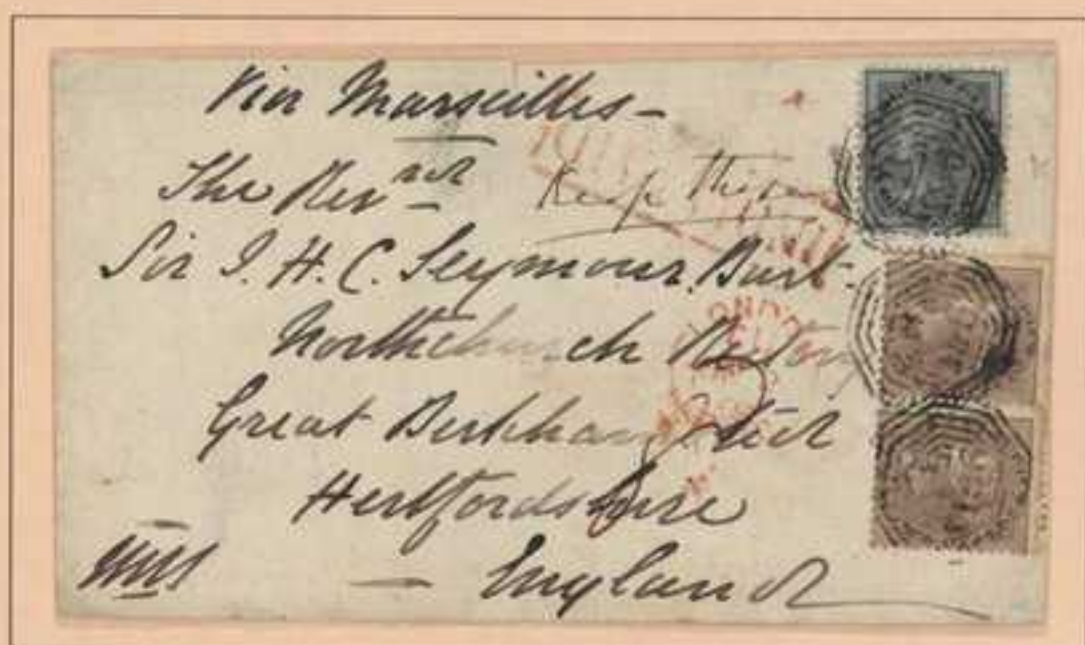 Via Marseilles -
The Revnd
Keep this
Sir J. H. C. Seymour, Burt.
Northchurch Rectory
Great Berkhampsted
Hertfordshire
England